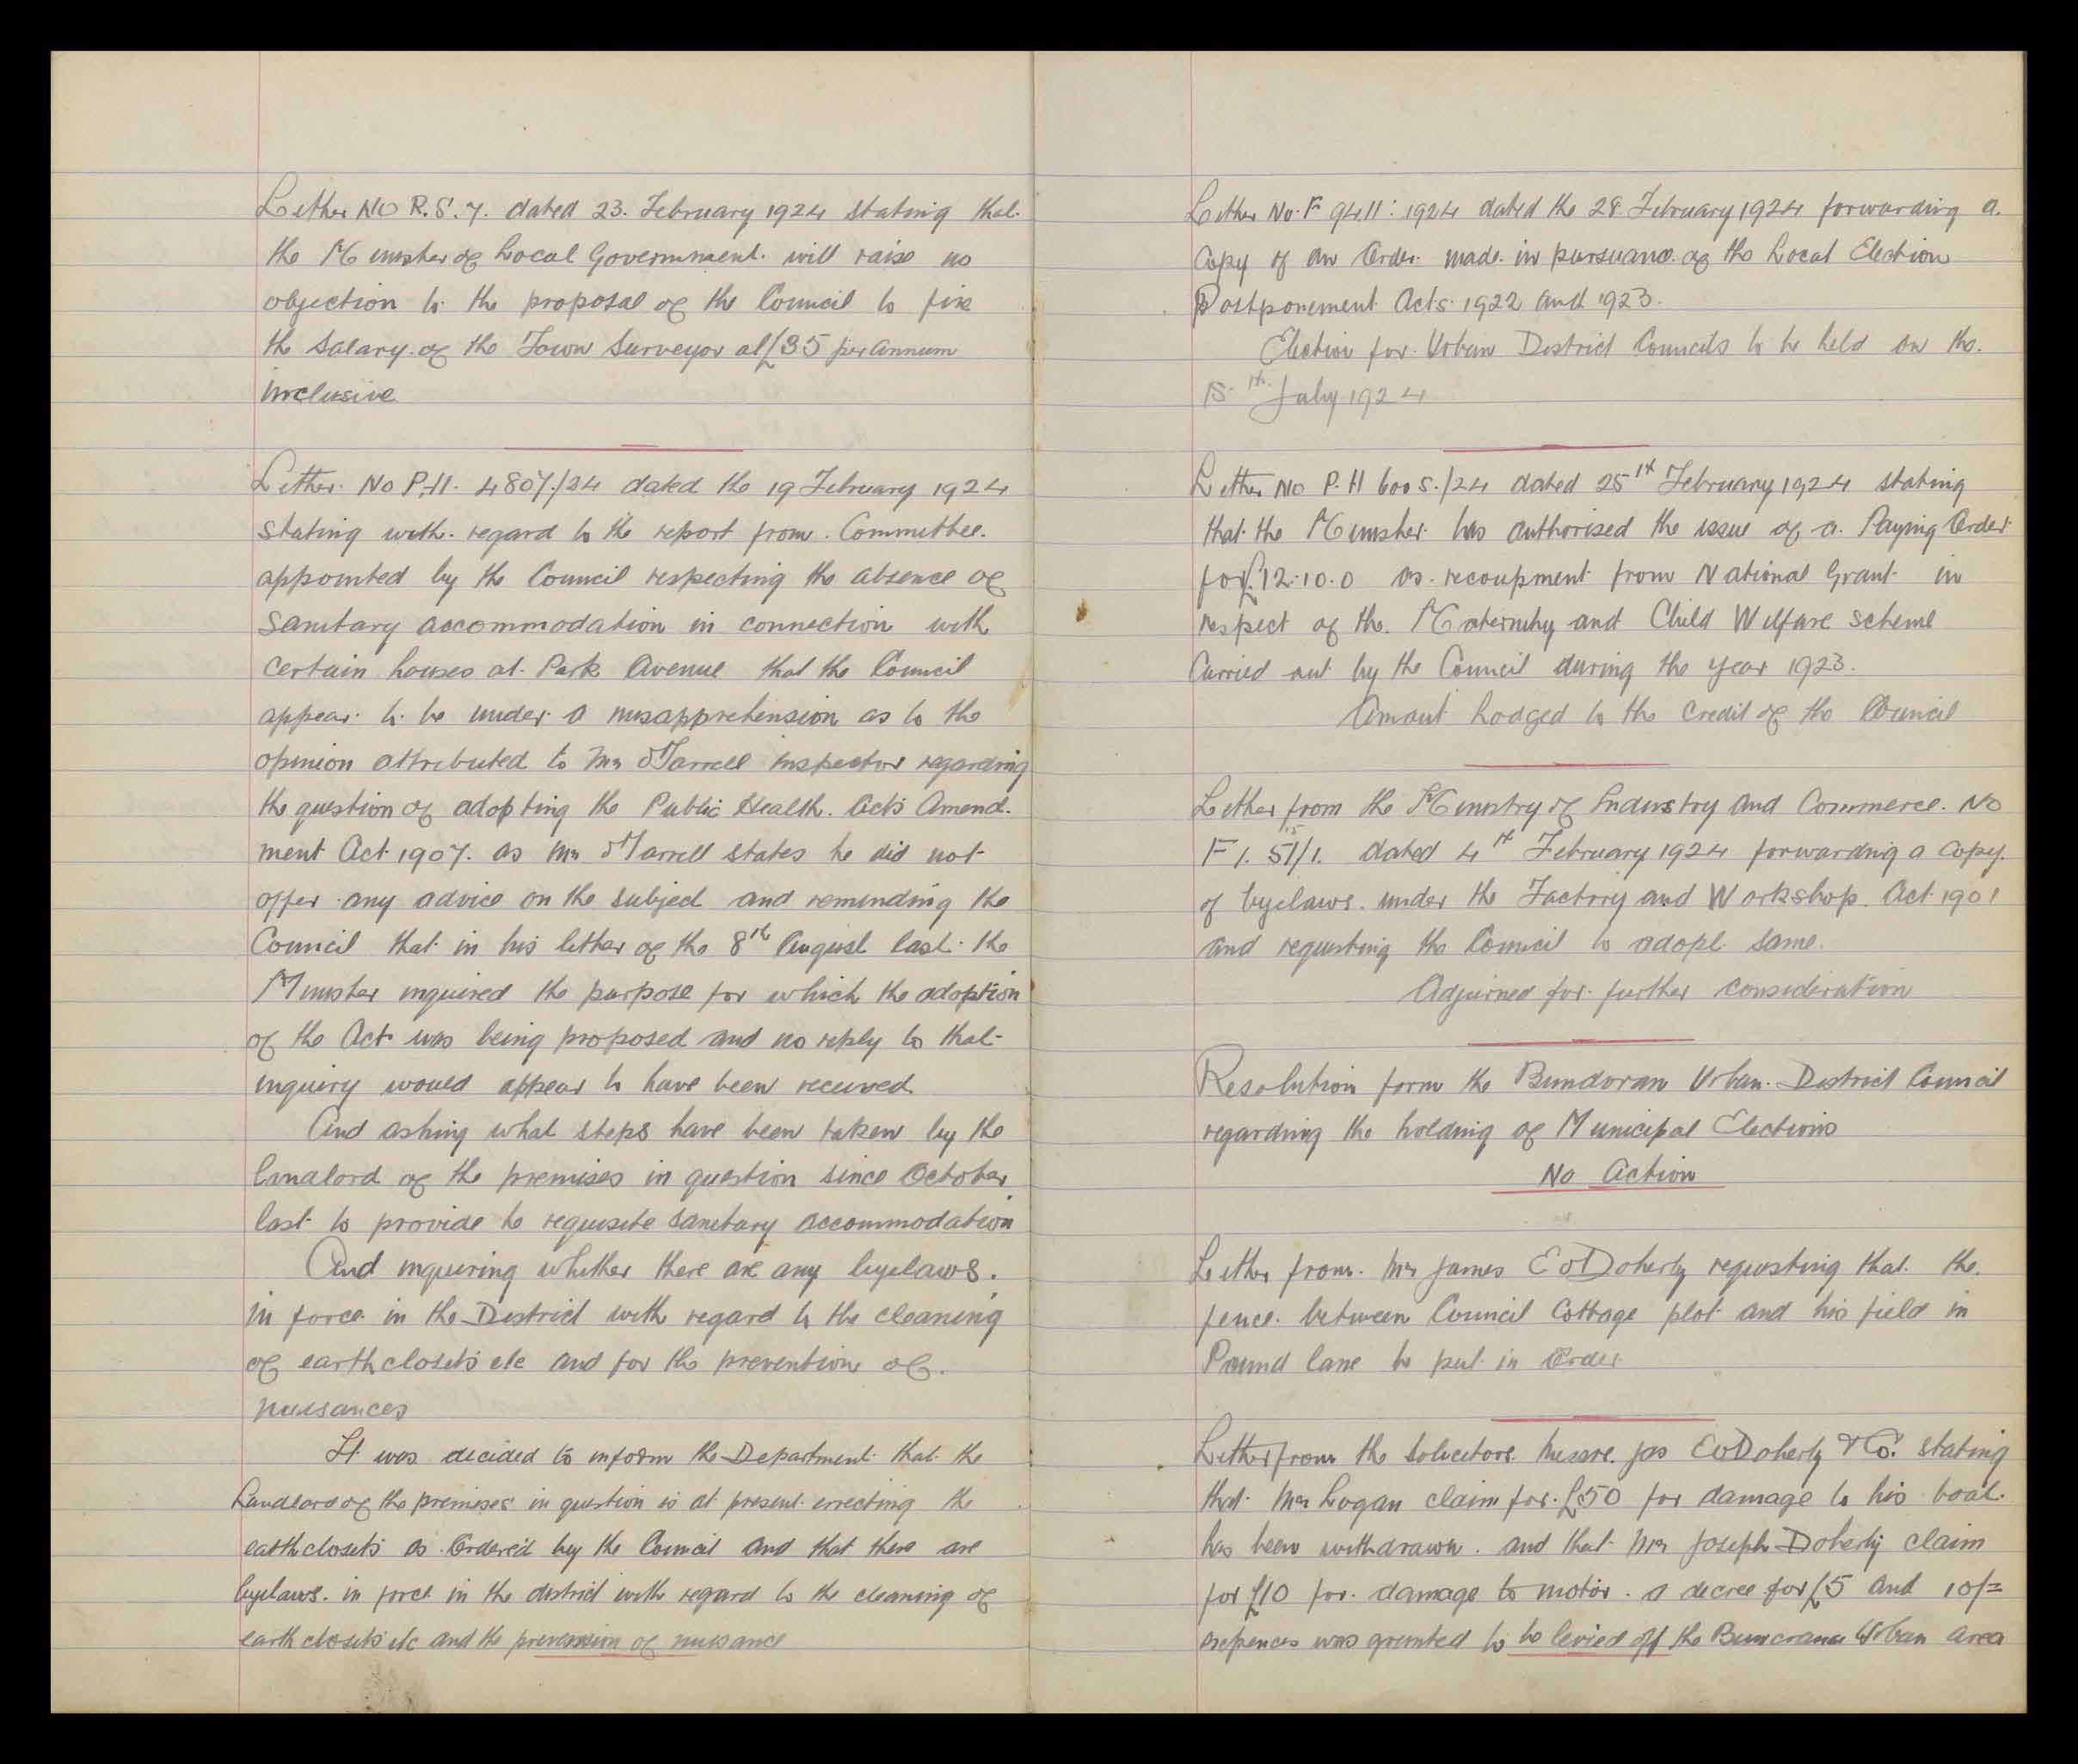 Letter No R.S.7. dated 23. February 1924 stating that
the Minister of Local Government will raise no
objection to the proposal of the Council to fix
the salary of the Town Surveyor at £35 per annum
inclusive
Letter No P.H. 4807/34 dated the 19 February 1924
stating with regard to the report from Committee
appointed by the Council respecting the absence of
sanitary accommodation in connection with
certain houses at Park Avenue that the Council
appear to be under a misapprehension as to the
opinion attributed to Mr Farrell inspector regarding
the question of adopting the Public Health Acts Amend-
ment Act 1907. as Mr Farrell states he did not
offer any advice on the subject and reminding the
Council that in his letter of the 8th August last the
Minister inquired the purpose for which the adoption
of the Act was being proposed and no reply to that
inquiry would appear to have been received
And asking what steps have been taken by the
landlord of the premises in question since October
last to provide to requisite sanitary accommodation
And inquiring whether there are any byelaws.
in force in the District with regard to the cleaning
of earth closets etc and for the prevention of.
nuisances
It was decided to inform the Department that the
Landlord of the premises in question is at present errecting the
earth closets as Ordered by the Council and that there are
byelaws. in force in the district with regard to the cleaning of
earth closets etc and the prevension of nuisance
Letter No. F 9411: 1924 dated the 28 February 1924 forwarding a
Copy of an Order made in pursuance of the Local Election
Postponement Acts 1922 and 1923.
Election for Urban District Councils to be held on the
15th July 1924
Letter No P.H 600 S./24 dated 25th February 1924 stating
that the Minister has authorised the issue of a Paying Order
for £12.10.0 as recoupment from National Grant in
respect of the Maternity and Child Welfare scheme
Carried out by the Council during the year 1923.
Amount Lodged to the Credit of the Council
Letter from the Ministry of Industry and Commerce. No
F 1. 51/1. dated 4th February 1924 forwarding a copy
of byelaws under the Factory and Workshop Act 1901
and requesting the Council to adopt same.
Adjurned for further consideration
Resolution form the Bundoran Urban District Council
regarding the holding of Municipal Elections
No Action
Letter from Mr James E O'Doherty requesting that the
fence between Council Cottage plot and his field in
Pound lane be put in Order
Letter from the Solicitors Messrs Jas E O'Doherty & Co. stating
that Mr Logan claim for £50 for damage to his boat
has been withdrawn and that Mr Joseph Doherty claim
for £10 for damage to motor a decree for £5 and 10/=
expences was granted to be levied off the Buncrana Urban area